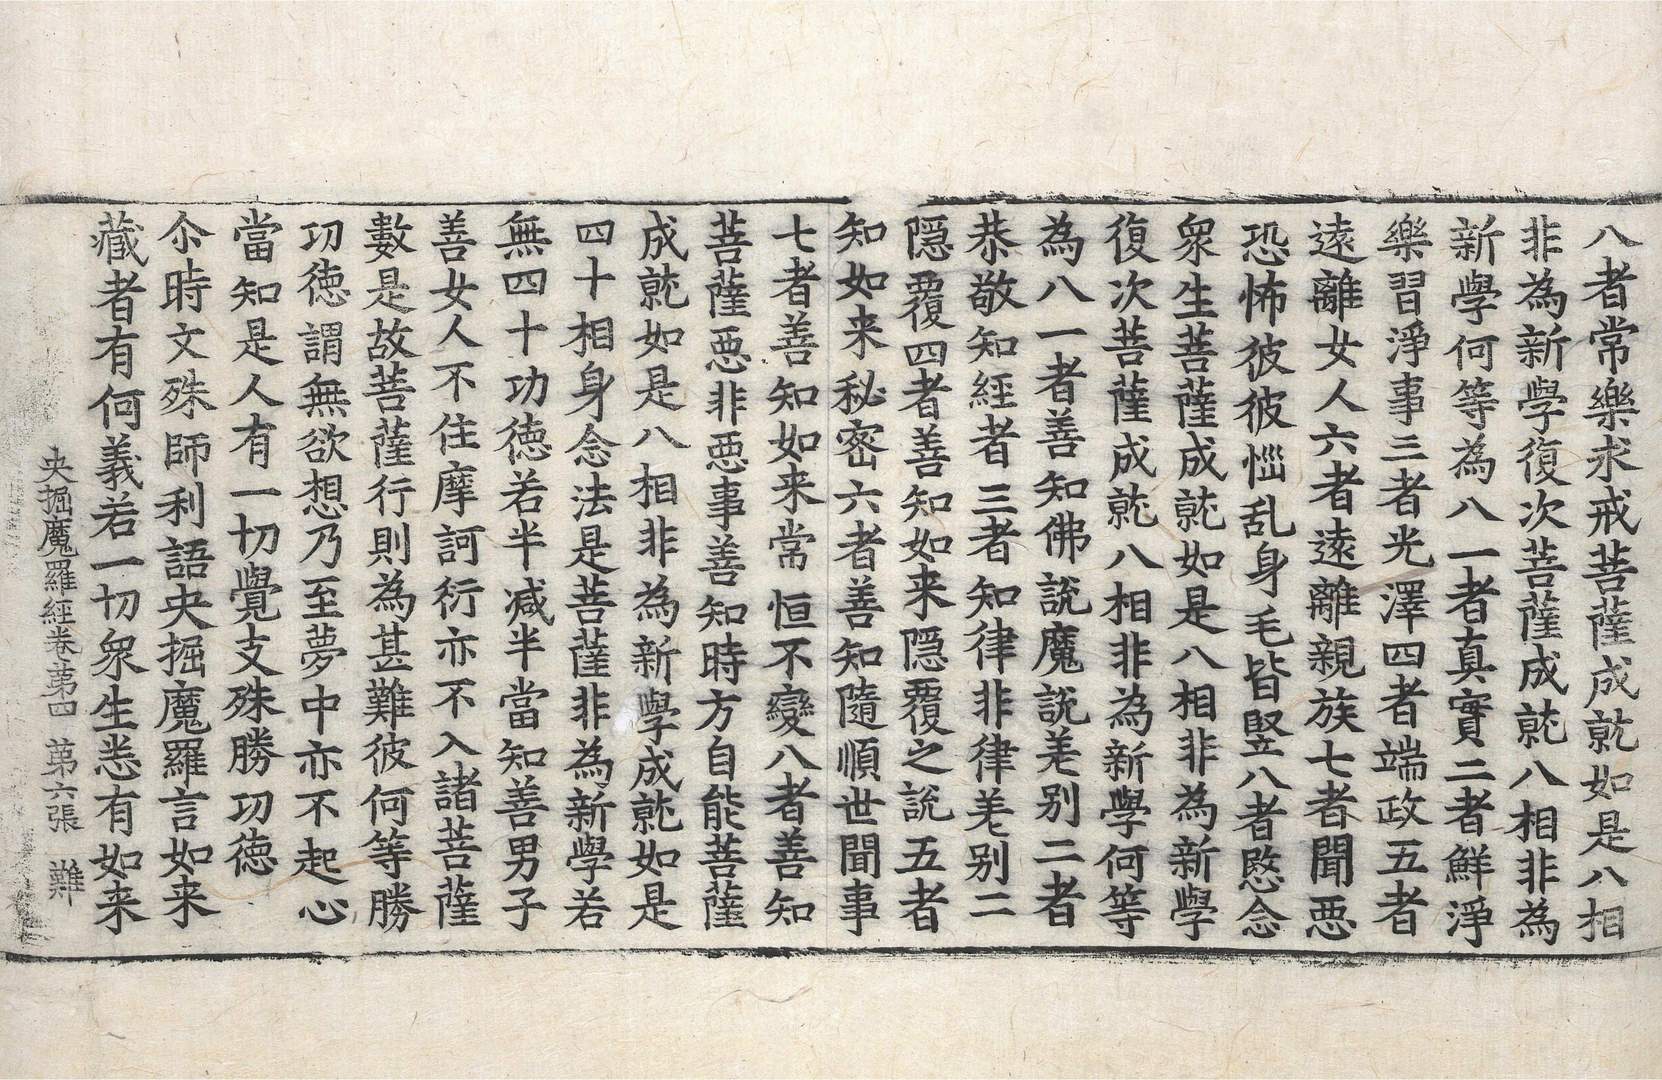 八者常樂求戒菩薩成就如是八相
非為新學復次菩薩成就八相非為
新學何等為八一者真實二者鮮淨
樂習淨事三者光澤四者端政五者
遠離女人六者遠離親族七者聞惡
恐怖彼彼惱乱身毛皆竪八者愍念
衆生菩薩成就如是八相非為新學
復次菩薩成就八相非為新學何等
為八一者善知佛說魔說差别二者
恭敬知經者三者知律非律差别二
隠覆四者善知如来隠覆之說五者
知如来秘密六者善知隨順世間事
七者善知如来常恒不變八者善知
菩薩惡非惡事善知時方自能菩薩
成就如是八相非為新學成就如是
四十相身念法是菩薩非為新學若
無四十功德若半减半當知善男子
善女人不住摩訶衍亦不入諸菩薩
數是故菩薩行則為甚難彼何等勝
功德謂無欲想乃至夢中亦不起心
當知是人有一切覺支殊勝功德
尒時文殊師利語央掘魔羅言如来
藏者有何義若一切衆生悉有如来
央掘魔羅經卷第四 第六張 難